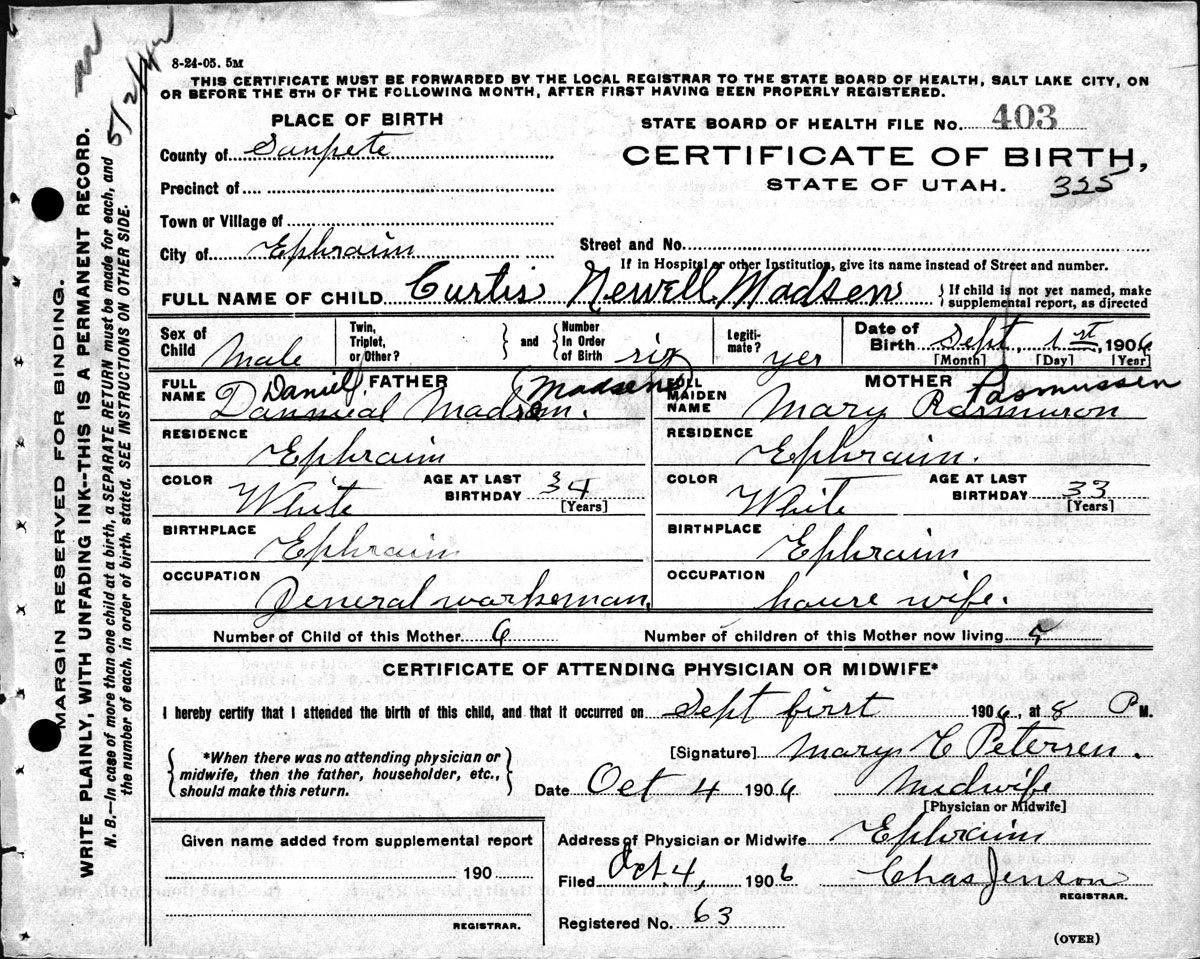 8-24-05. 5M
THIS CERTIFICATE MUST BE FORWARDED BY THE LOCAL REGISTRAR TO THE STATE BOARD OF HEALTH, SALT LAKE CITY, ON
OR BEFORE THE 5TH OF THE FOLLOWING MONTH, AFTER FIRST HAVING BEEN PROPERLY REGISTERED.
PLACE OF BIRTH
STATE BOARD OF HEALTH FILE No. 403
County of Sanpete
CERTIFICATE OF BIRTH,
Precinct of
STATE OF UTAH. 325
Town or Village of
City of Ephraim
Street and No.
If in Hospital or other Institution, give its name instead of Street and number.
FULL NAME OF CHILD Curtis Newell Madsen { If child is not yet named, make
supplemental report, as directed
Sex of Child Male
Twin, Triplet, or Other? } and { Number In Order of Birth six
Legitimate? yes
Date of Birth Sept, 1st, 1906
[Month] [Day] [Year]
FULL NAME FATHER
Daniel (Madsen)
Dannieal Madsen.
FULL MAIDEN NAME MOTHER
Rasmussen
Mary Rasmuson
RESIDENCE Ephraim
RESIDENCE Ephraim.
COLOR White AGE AT LAST BIRTHDAY 34 [Years]
COLOR White AGE AT LAST BIRTHDAY 33 [Years]
BIRTHPLACE Ephraim
BIRTHPLACE Ephraim
OCCUPATION General workeman.
OCCUPATION house wife.
Number of Child of this Mother 6 Number of children of this Mother now living 5
CERTIFICATE OF ATTENDING PHYSICIAN OR MIDWIFE*
I hereby certify that I attended the birth of this child, and that it occurred on Sept first 1906, at 8 P M.
{ *When there was no attending physician or
midwife, then the father, householder, etc.,
should make this return. }
[Signature] Mary C Petersen.
Date Oct 4 1906 Midwife
[Physician or Midwife]
Given name added from supplemental report
190
REGISTRAR.
Address of Physician or Midwife Ephraim
Filed Oct 4, 1906 Chas Jenson
REGISTRAR.
Registered No. 63
(OVER)
MARGIN RESERVED FOR BINDING.
WRITE PLAINLY, WITH UNFADING INK--THIS IS A PERMANENT RECORD.
N. B.—In case of more than one child at a birth, a SEPARATE RETURN must be made for each, and
the number of each, in order of birth, stated. SEE INSTRUCTIONS ON OTHER SIDE.